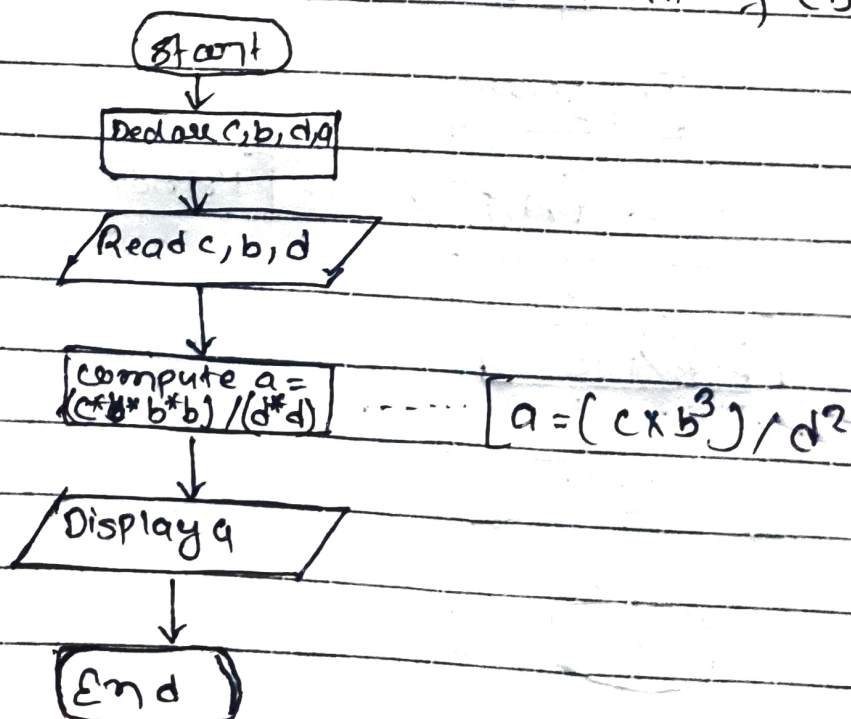 Start
Declare c, b, d, a
Read c, b, d
compute a =
(c*b*b*b) / (d*d)
a = ( c x b³ ) / d²
Display a
End